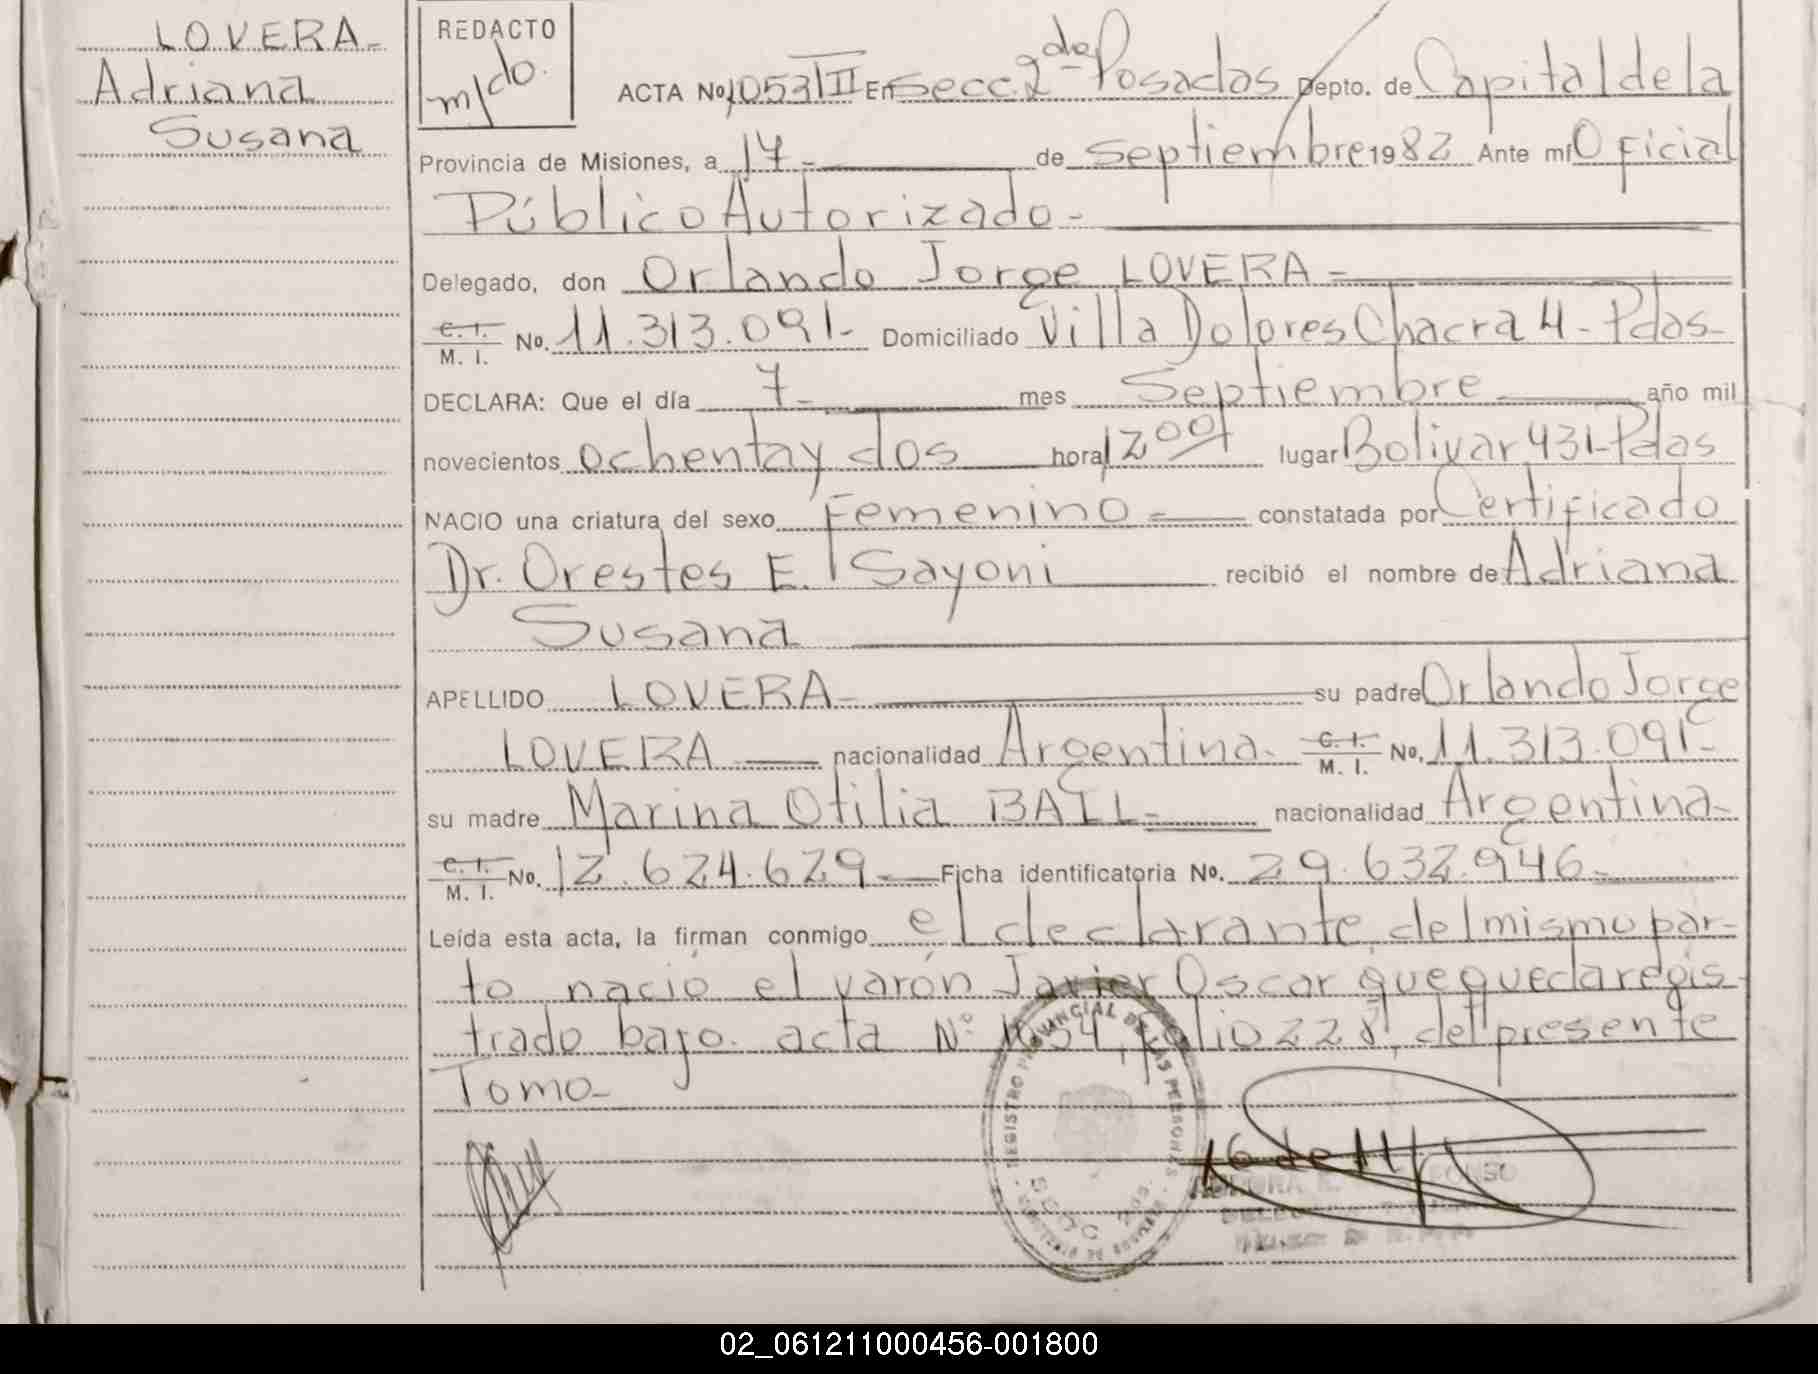 LOVERA-
Adriana
Susana
REDACTO
m/do.
ACTA No 1053 TII En Secc. 2da Posadas Depto. de Capital de la
Provincia de Misiones, a 17- de Septiembre 1982 Ante mí Oficial
Público Autorizado-
Delegado, don Orlando Jorge LOVERA-
C. I.
M. I. No. 11.313.091- Domiciliado Villa Dolores Chacra 4-Pdas-
DECLARA: Que el día 7- mes Septiembre año mil
novecientos ochenta y dos hora 1200 lugar Bolivar 431-Pdas
NACIO una criatura del sexo Femenino- constatada por Certificado
Dr. Orestes E. Sayoni recibió el nombre de Adriana
Susana
APELLIDO LOVERA- su padre Orlando Jorge
LOVERA nacionalidad Argentina- C. I.
M. I. No. 11.313.091-
su madre Marina Otilia BAEL- nacionalidad Argentina-
C. I.
M. I. No. 12.624.629- Ficha identificatoria No. 29.632.946-
Leída esta acta, la firman conmigo el declarante, del mismo par-
to nació el varón Javier Oscar que queda regis-
trado bajo acta N° 1054, folio 228, del presente
Tomo-
REGISTRO PROVINCIAL DE LAS PERSONAS
SECC 2da.
16 de 11
02_061211000456-001800